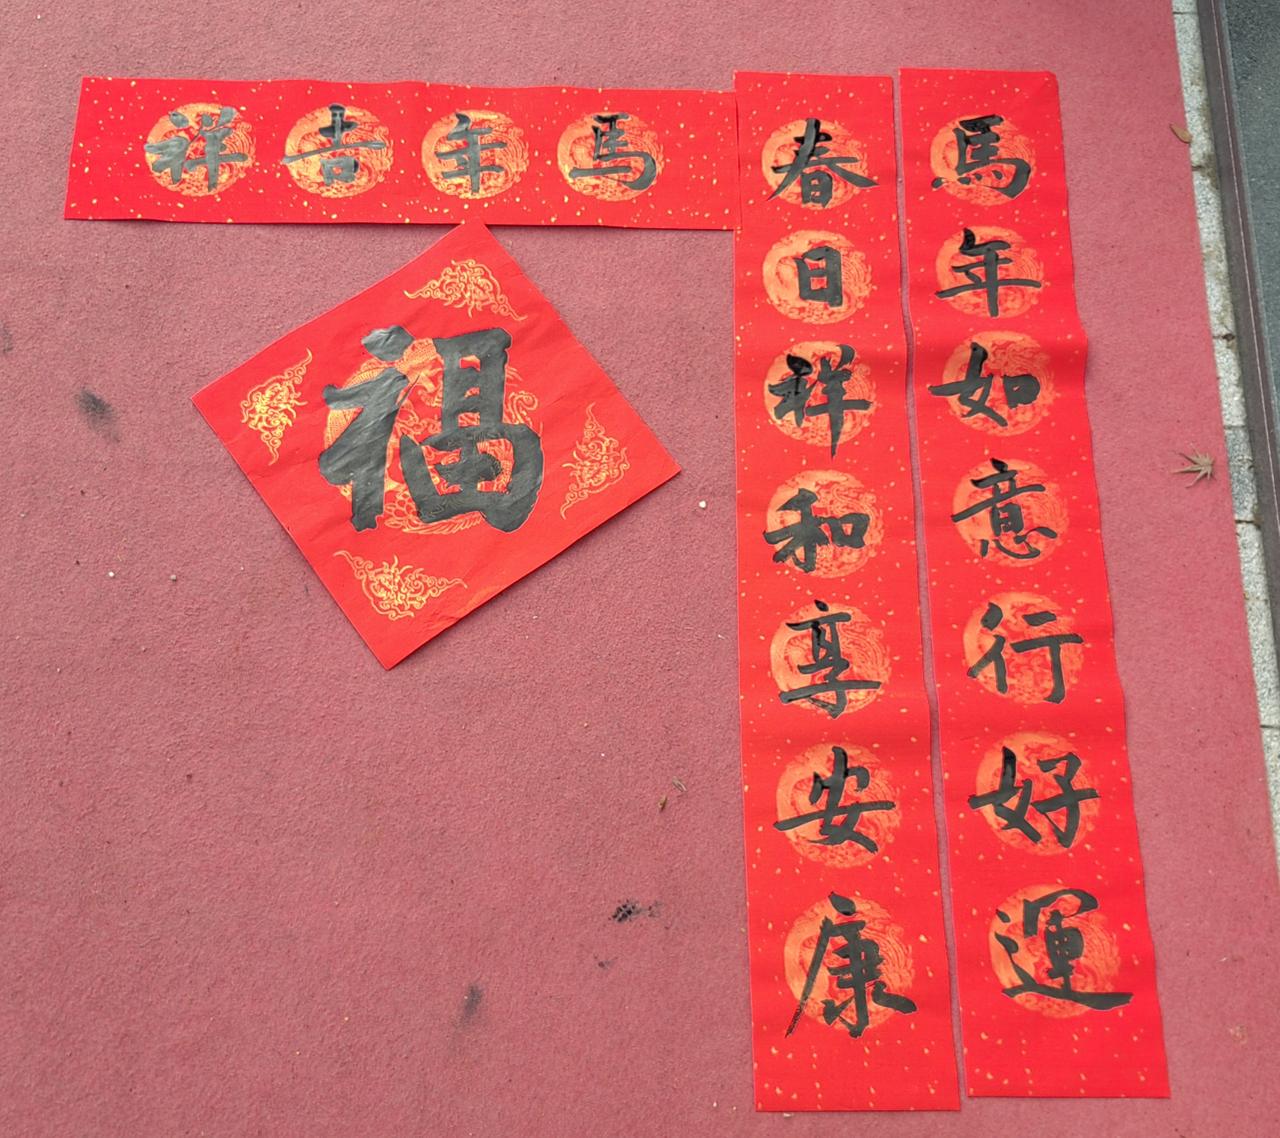 馬年如意行好運
春日祥和享安康
馬年吉祥
福